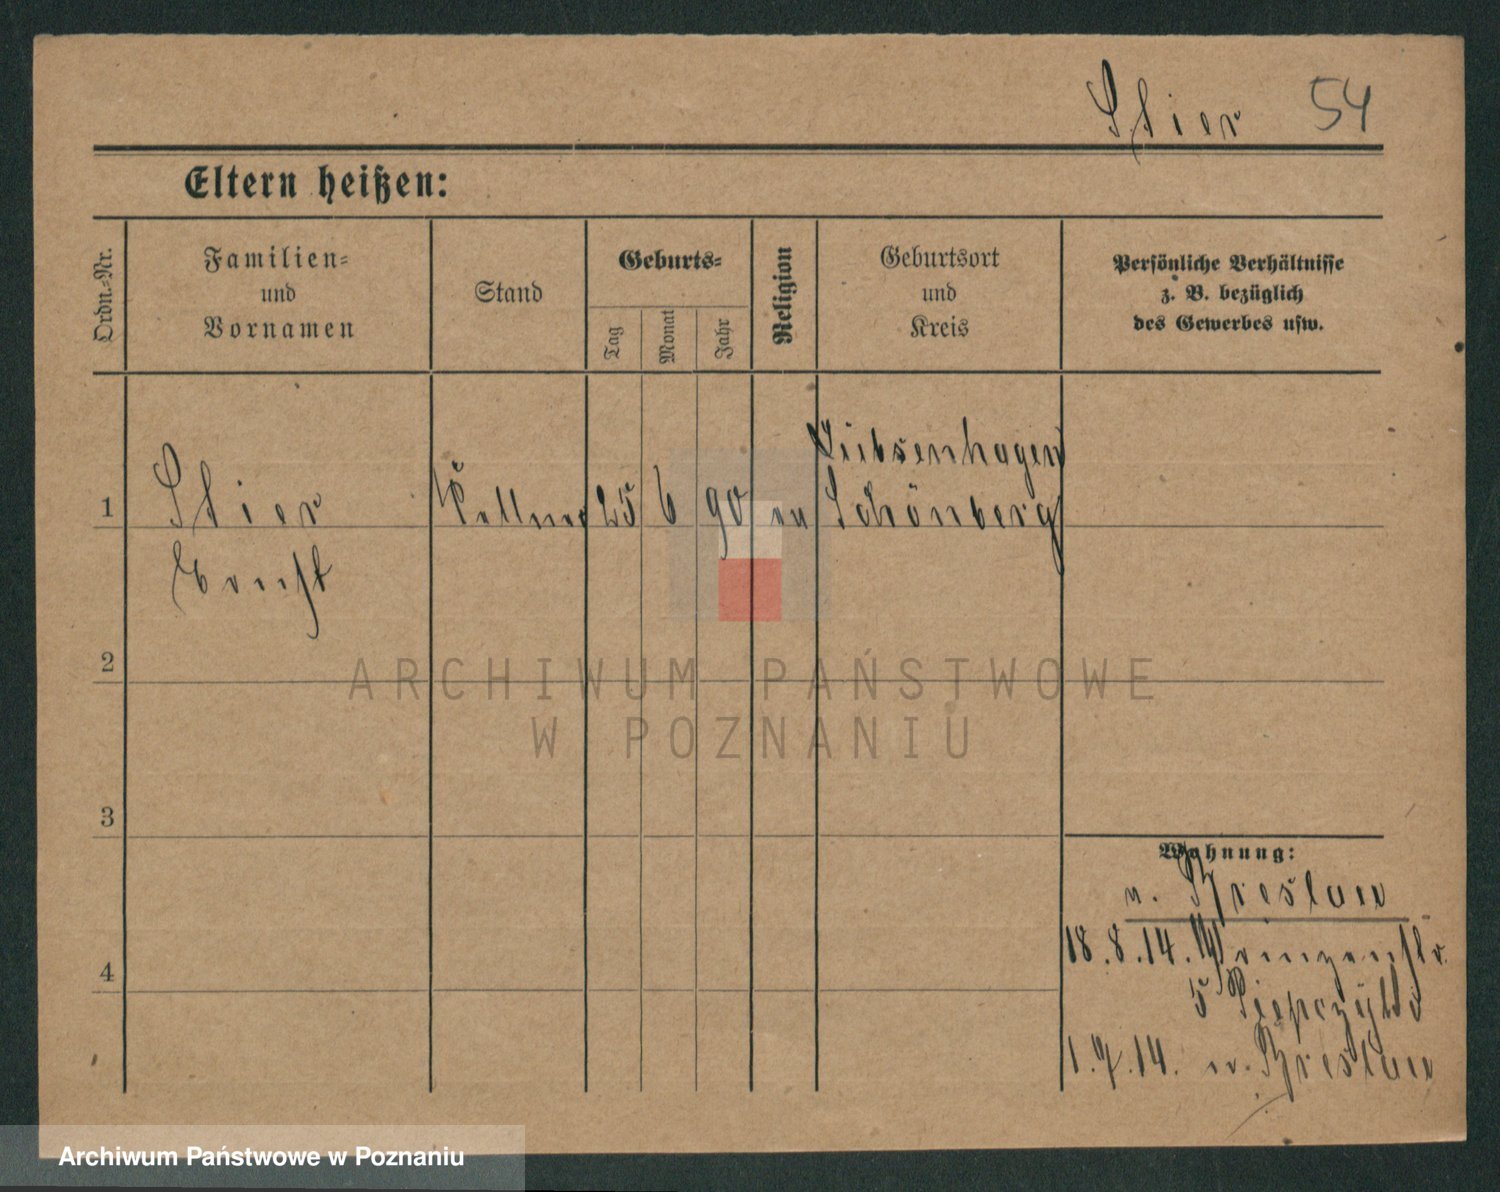 Stier 54
Eltern heißen:
Ordn.-Nr.
Familien-
und
Vornamen
Stand
Geburts-
Tag
Monat
Jahr
Religion
Geburtsort
und
Kreis
Persönliche Verhältnisse
z. B. bezüglich
des Gewerbes usw.
1
Stier
Ernst
Kellner
25 6 90
ev
Liebsenhagen
Schönberg
2
3
4
Wohnung:
n. Breslau
18.8.14. Prinzenstr.
5
1.9.14. n. Breslau
ARCHIWUM PAŃSTWOWE
W POZNANIU
Archiwum Państwowe w Poznaniu